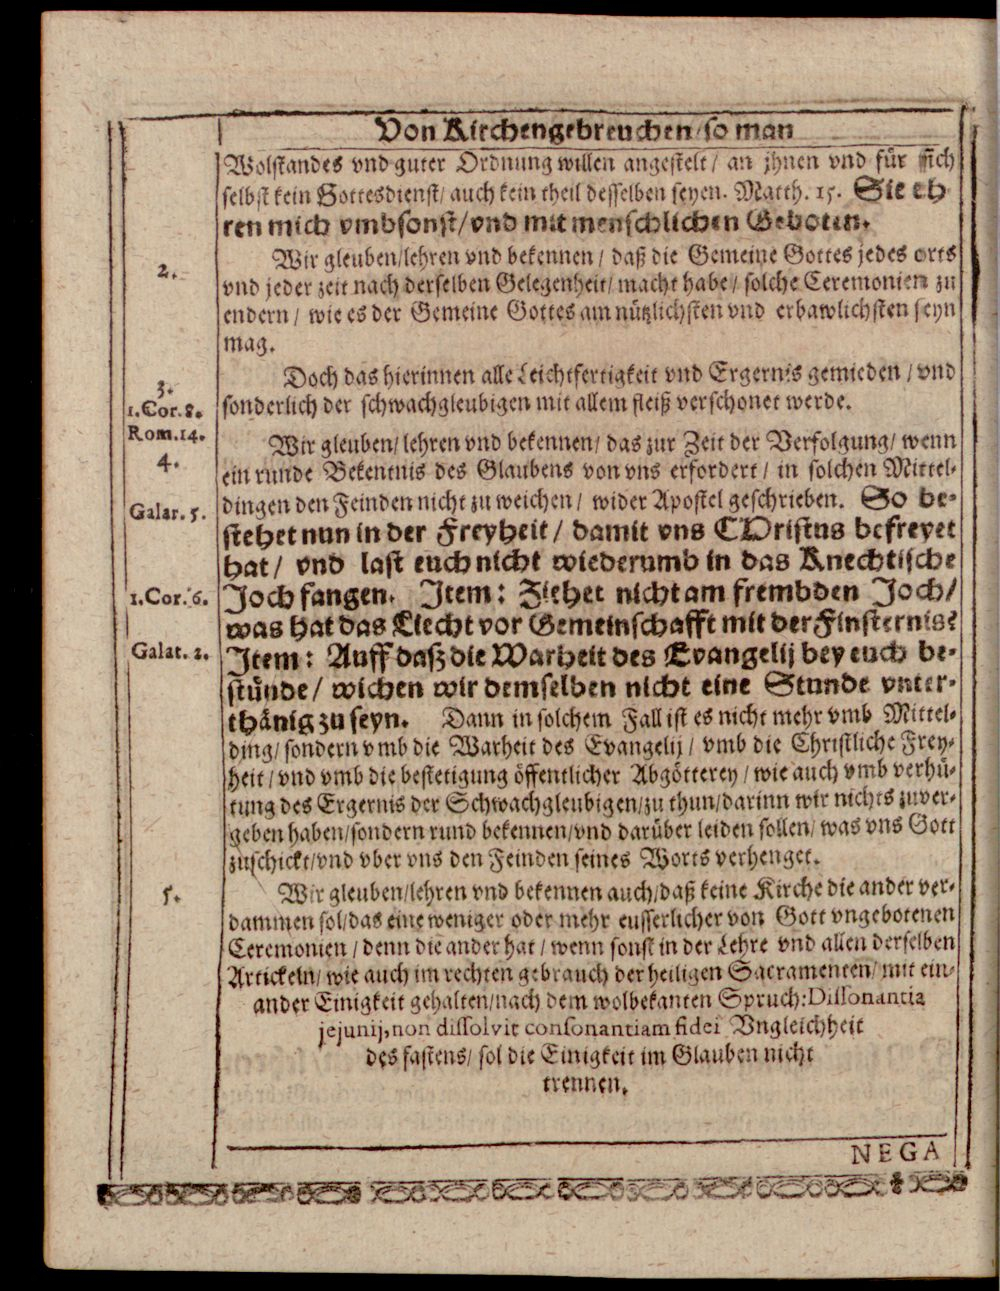 Von Kirchengebreuchen / so man
Wolstandes vnd guter Ordnung willen angestelt / an jhnen vnd für sich
selbst kein Gottesdienst / auch kein theil desselben seyen. Matth. 15. Sie eh
ren mich vmbsonst / vnd mit menschlichen Geboten.
2.
Wir gleuben / lehren vnd bekennen / daß die Gemeine Gottes jedes orts
vnd jeder zeit nach derselben Gelegenheit / macht habe / solche Ceremonien zu
endern / wie es der Gemeine Gottes am nützlichsten vnd erbawlichsten seyn
mag.
3.
Doch das hierinnen alle Leichtfertigkeit vnd Ergernis gemieden / vnd
1. Cor. 8.
sonderlich der schwachgleubigen mit allem fleiß verschonet werde.
Rom. 14.
4.
Wir gleuben / lehren vnd bekennen / das zur Zeit der Verfolgung / wenn
ein runde Bekentnis des Glaubens von vns erfordert / in solchen Mittel-
dingen den Feinden nicht zu weichen / wider Apostel geschrieben. So be-
Galat. 5.
stehet nun in der Freyheit / damit vns CHristus befreyet
hat / vnd last euch nicht wiederumb in das Knechtische
1. Cor. 6.
Joch fangen. Item: Ziehet nicht am frembden Joch /
was hat das Liecht vor Gemeinschafft mit der Finsternis?
Galat. 2.
Item: Auff daß die Warheit des Evangelij bey euch be-
stünde / wichen wir demselben nicht eine Stunde vnter-
thänig zu seyn. Dann in solchem Fall ist es nicht mehr vmb Mittel-
ding / sondern vmb die Warheit des Evangelij / vmb die Christliche Frey-
heit / vnd vmb die bestetigung öffentlicher Abgötterey / wie auch vmb verhü-
tung des Ergernis der Schwachgleubigen / zu thun / darinn wir nichts zuver-
geben haben / sondern rund bekennen / vnd darüber leiden sollen / was vns Gott
zuschickt / vnd vber vns den Feinden seines Worts verhenget.
5.
Wir gleuben / lehren vnd bekennen auch / daß keine Kirche die ander ver-
dammen sol / das eine weniger oder mehr eusserlicher von Gott vngebotenen
Ceremonien / denn die ander hat / wenn sonst in der Lehre vnd allen derselben
Artickeln / wie auch im rechten gebrauch der heiligen Sacramenten / mit ein-
ander Einigkeit gehalten / nach dem wolbekanten Spruch: Dissonantia
jejunij, non dissolvit consonantiam fidei Vngleichheit
des fastens / sol die Einigkeit im Glauben nicht
trennen.
NEGA